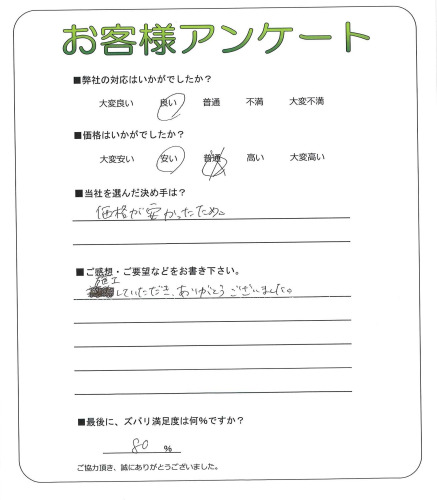 お客様アンケート
■弊社の対応はいかがでしたか？
大変良い 良い 普通 不満 大変不満
■価格はいかがでしたか？
大変安い 安い 普通 高い 大変高い
■当社を選んだ決め手は？
価格が安かったため。
■ご感想・ご要望などをお書き下さい。
施工
していただき、ありがとうございました。
■最後に、ズバリ満足度は何%ですか？
80 %
ご協力頂き、誠にありがとうございました。